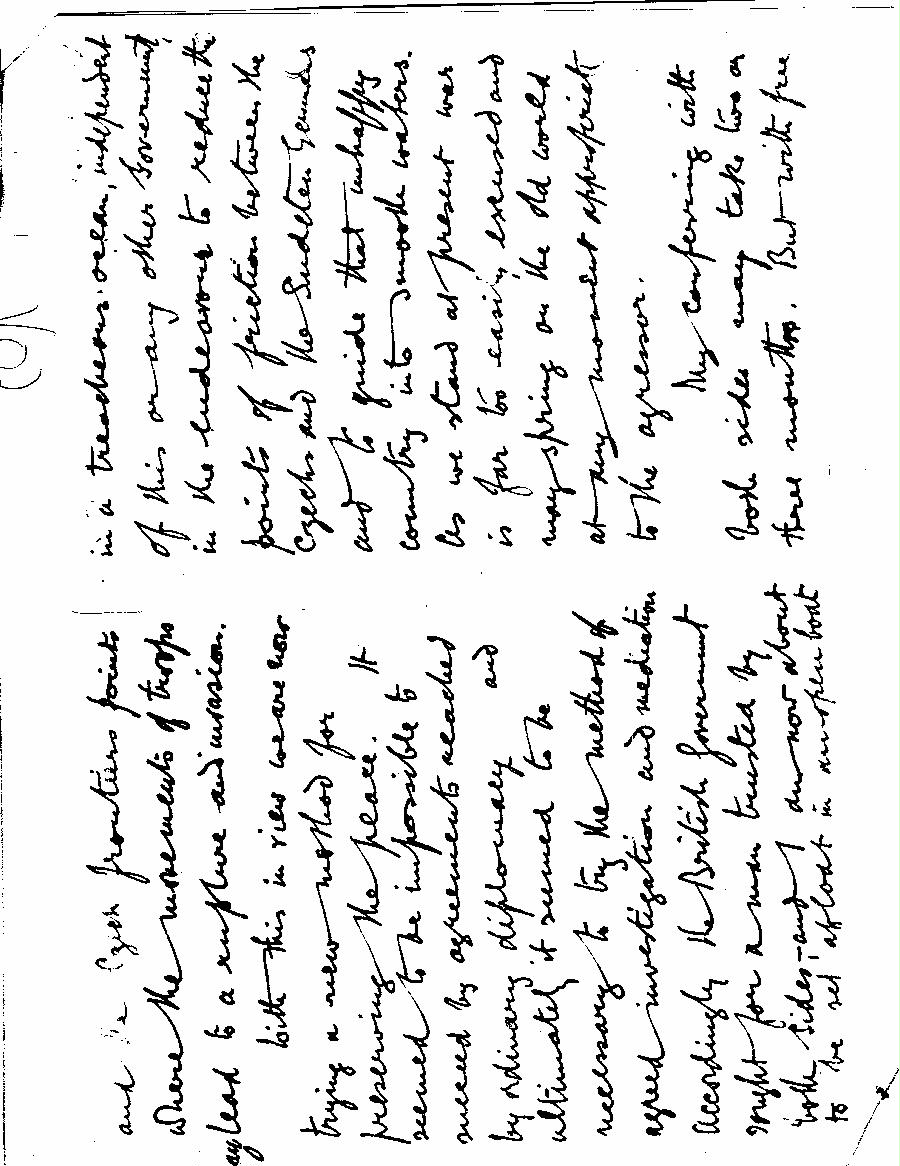 and the Czech frontiers points
where the movements of troops
may lead to a rupture and invasion.
With this in view we are now
trying a new method for
preserving the peace. It
seemed to be impossible to
succeed by agreements reached
by ordinary diplomacy and
ultimately it seemed to be
necessary to try the method of
agreed investigation and mediation
Accordingly the British Government
sought for a man trusted by
both sides, and I am now about
to be set afloat in an open boat
in a treacherous ocean, independent
of this or any other Government,
in the endeavour to reduce the
points of friction between the
Czechs and the Sudeten Germans
and to guide that unhappy
country into smooth waters.
As we stand at present war
is far too easily excused and
may spring on the old world
at any moment appropriate
to the agressor.
My conferring with
both sides may take two or
three months. But with free